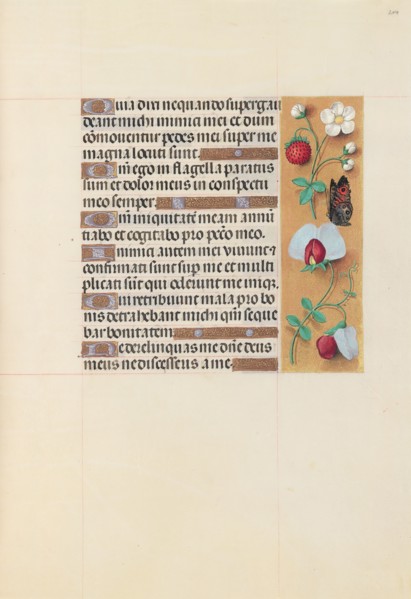 Quia dixi nequando supergau
deant michi inimici mei et dum
cōmoventur pedes mei super me
magna locuti sunt.
Qm̄ ego in flagella paratus
sum et dolor meus in conspectu
meo semper.
Qm̄ iniquitatē meam annū
tiabo et cogitabo pro pctō meo.
Inimici autem mei vivunt et
confirmati sunt sup me et multi
plicati sūt qui oderunt me iniq.
Qui retribuunt mala pro bo
nis detrahebant michi qm̄ seque
bar bonitatem.
Ne derelinquas me dn̄e deus
meus ne discesseris a me.